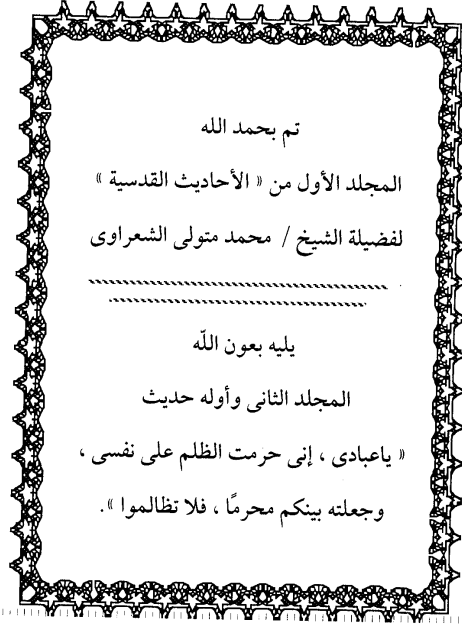 تم بحمد الله
المجلد الأول من « الأحاديث القدسية »
لفضيلة الشيخ / محمد متولى الشعراوى
يليه بعون اللّه
المجلد الثانى وأوله حديث
« ياعبادى ، إنى حرمت الظلم على نفسى ،
وجعلته بينكم محرمًا ، فلا تظالموا ».